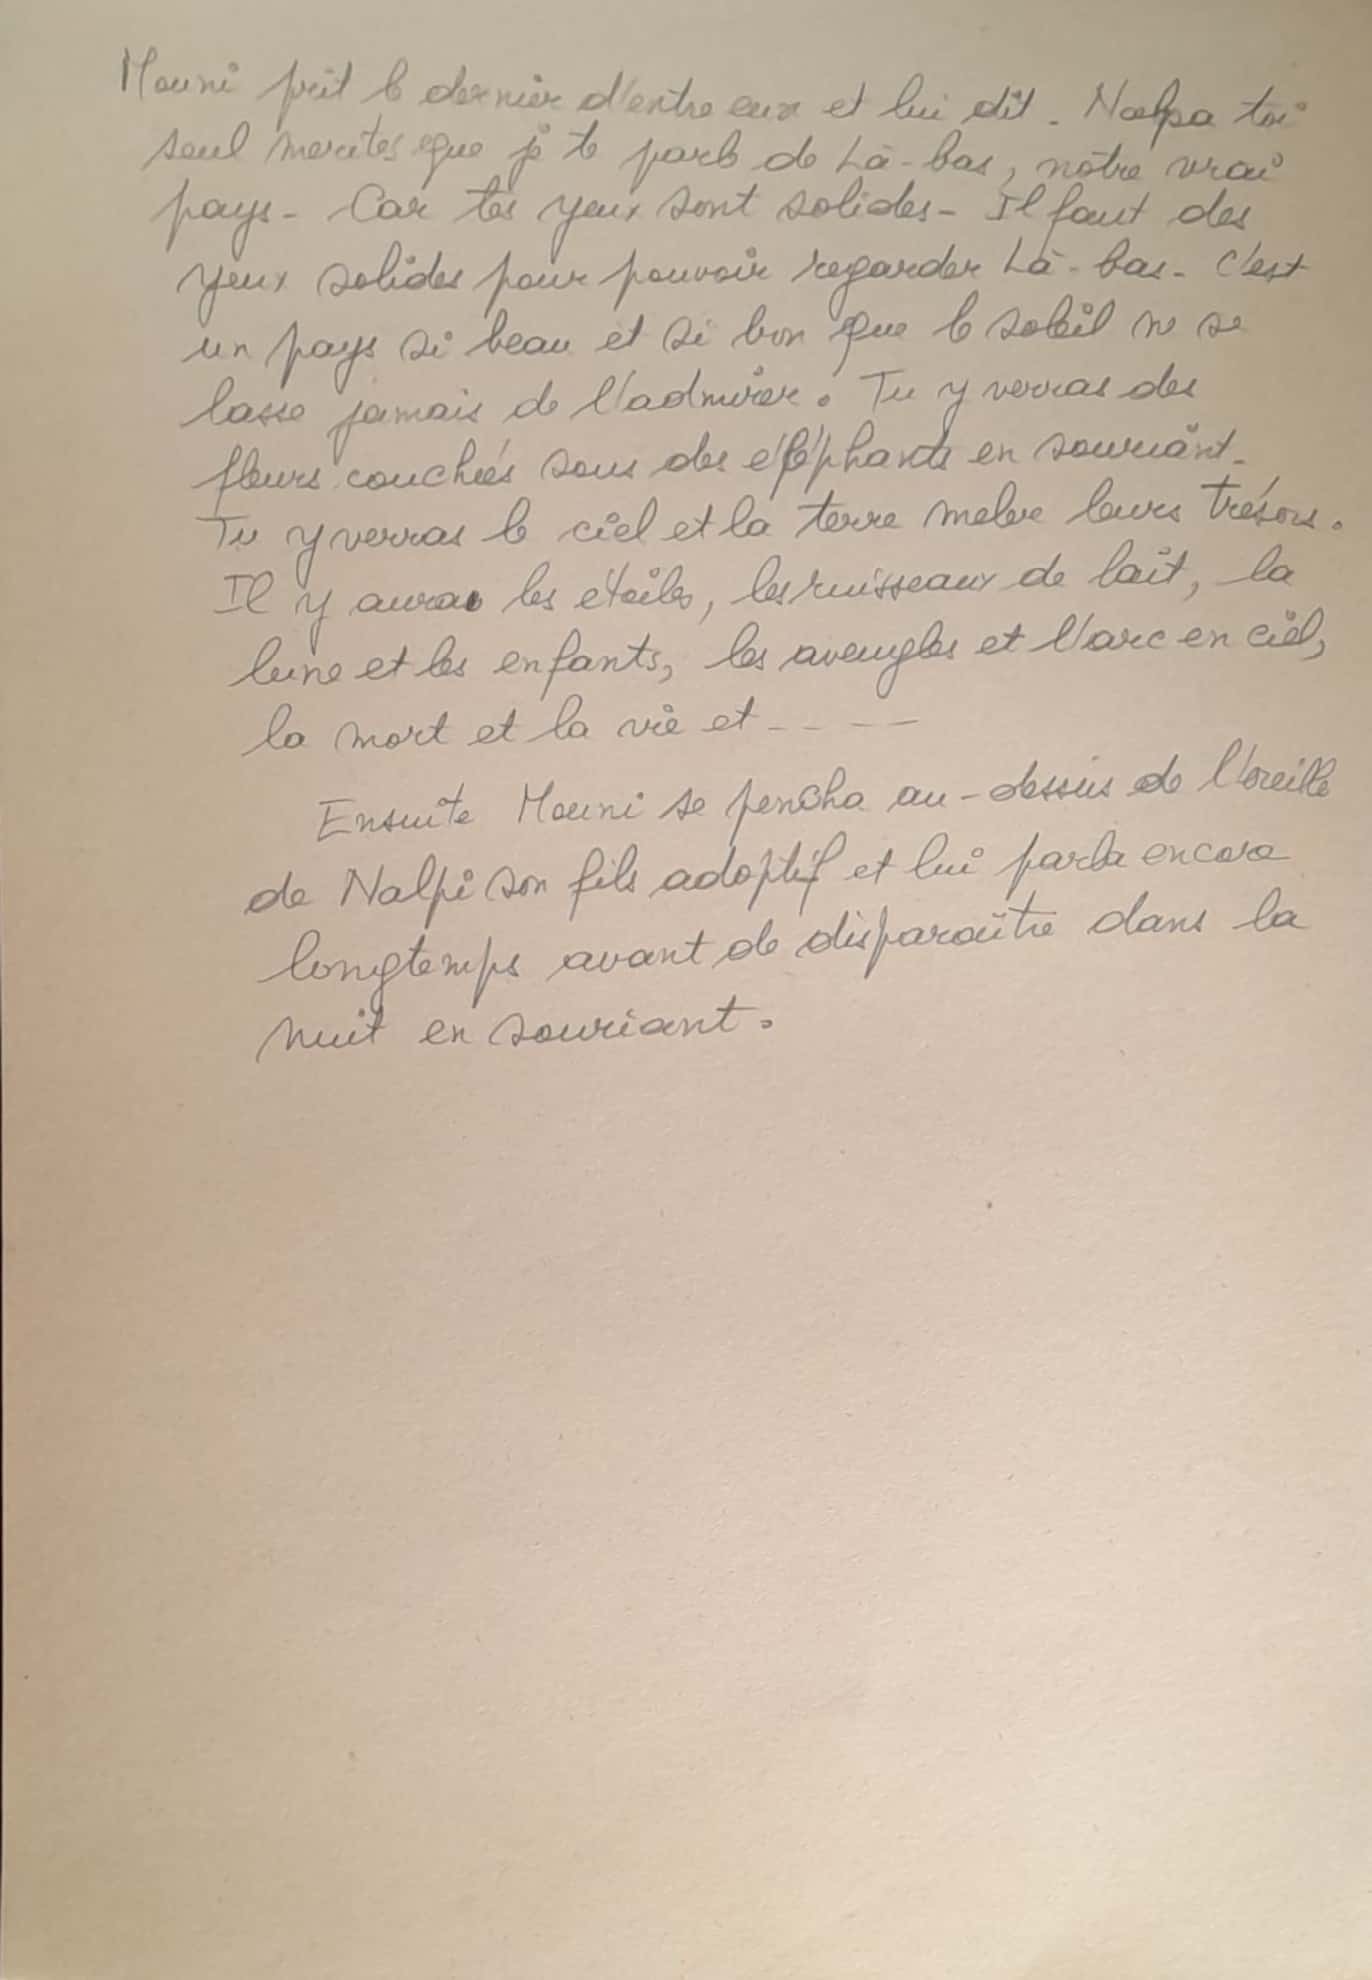 Mouni prit le dernier d'entre eux et lui dit. Nalpa toi
seul merites que je te parle de Là-bas, nôtre vrai
pays - Car tes yeux sont solides - Il faut des
yeux solides pour pouvoir regarder Là-bas - C'est
un pays si beau et si bon que le soleil ne se
lasse jamais de l'admirer. Tu y verras des
fleurs couchées sous des éléphants en souriant -
Tu y verras le ciel et la terre meler leurs trésors.
Il y aura les étoiles, les ruisseaux de lait, la
lune et les enfants, les aveugles et l'arc en ciel,
la mort et la vie et - - - -
Ensuite Mouni se pencha au-dessus de l'oreille
de Nalpi son fils adoptif et lui parla encore
longtemps avant de disparaître dans la
nuit en souriant.